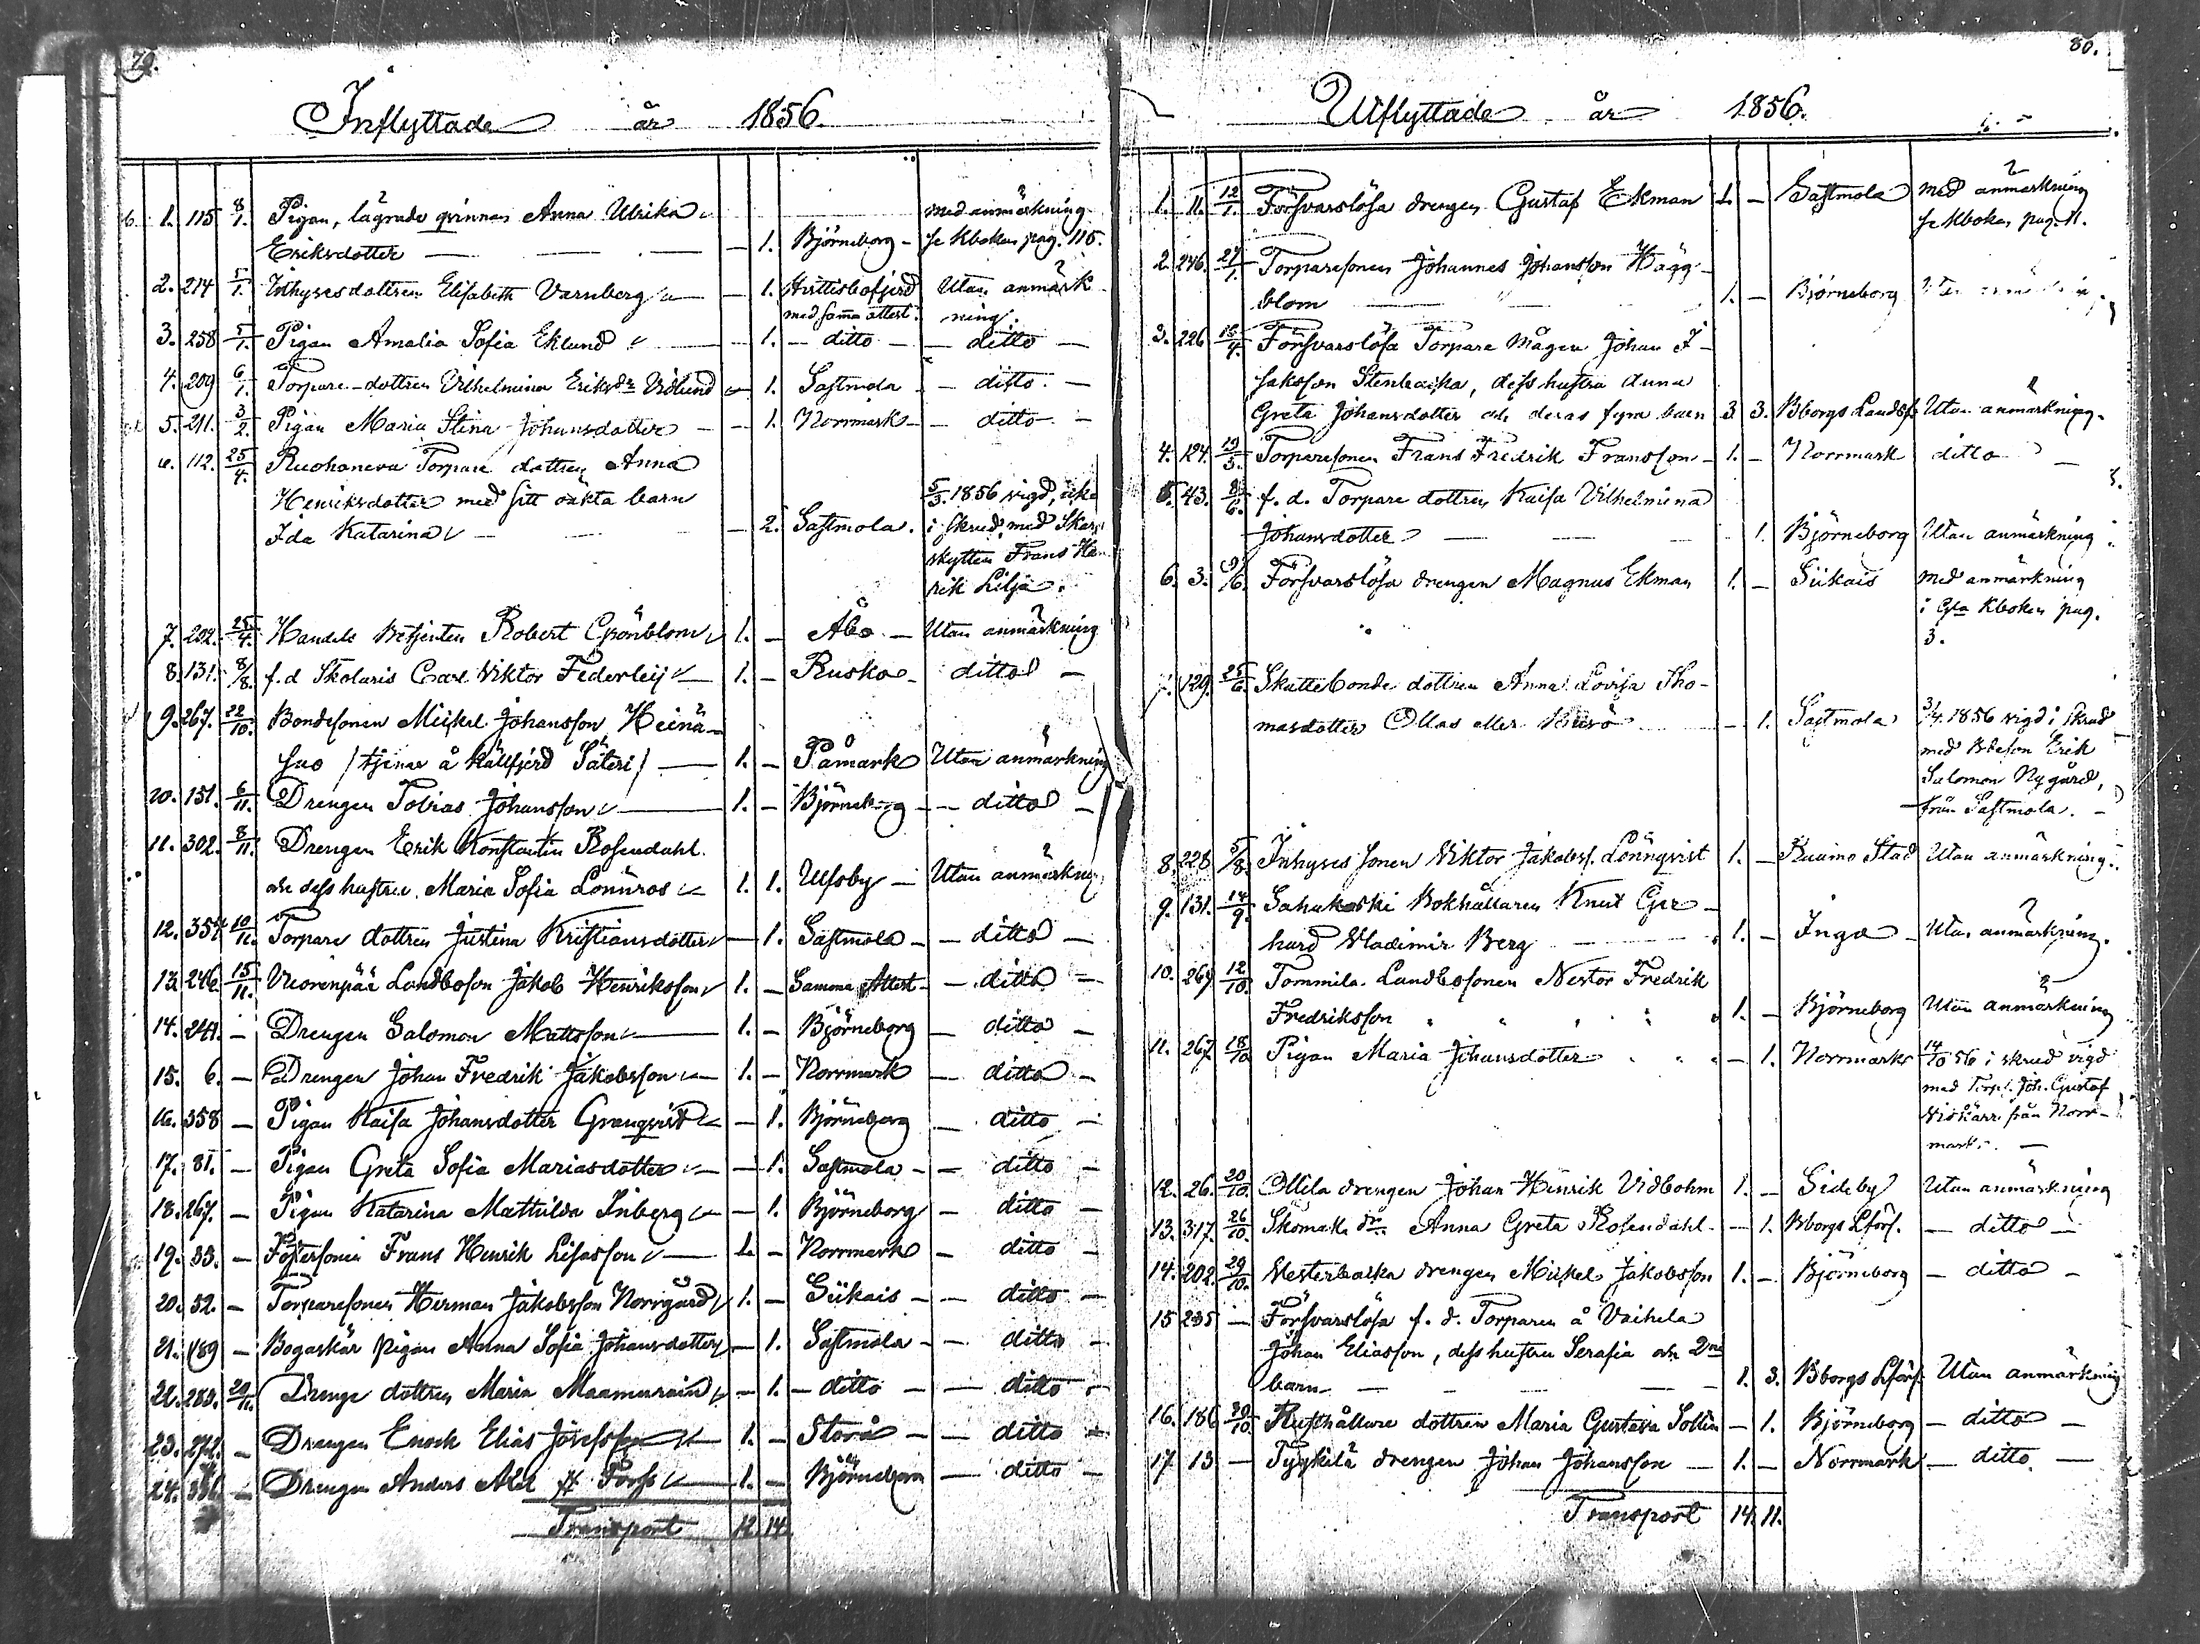 79.
Inflyttade år 1856.
1. 115 8/1. Pigan, lägrade qvinnan Anna Ulrika med anmärkning
Eriksdotter — — — — 1. Björneborg — se Kboken pag. 115.
2. 214 5/1. Inhysesdottren Elisabeth Varnberg — — 1. Hvittisbofjerd Utan anmärk-
med samma attest. ning.
3. 258 5/1. Pigan Amalia Sofia Eklund — 1. — ditto — — ditto —
4. 209 6/1. Torpare-dottren Vilhelmina Eriksdr Vidlund — 1. Sastmola — ditto. —
5. 211. 3/2. Pigan Maria Stina Johansdotter — — 1. Norrmark — — ditto —
6. 112. 25/4. Ruohoneva Torpare dottren Anna
Henriksdotter med sitt oäkta barn 5/3. 1856 vigd, icke
Ida Katarina — — — 2. Sastmola. i skrud, med Skarp-
skytten Frans Hen-
rik Lilja.
7. 202. 25/4. Handels Betjenten Robert Grönblom 1. — Åbo — Utan anmärkning
8. 131. 8/8. f.d Skolaris Carl Viktor Federleij — 1. — Rusko — ditto —
9. 267. 22/10. Bondesonen Mickel Johansson Heinä-
suo /tjenar å Källfjerd Säteri/ — 1. — Påmark Utan anmärkning
10. 151. 6/11. Drengen Tobias Johansson — 1. — Björneborg — ditto —
11. 302. 8/11. Drengen Erik Konstantin Rosendahl
och dess hustru Maria Sofia Lönnros — 1. 1. Ulfsby — Utan anmärkning
12. 354 10/11. Torpare dottren Justina Kristiansdotter — 1. Sastmola — — ditto —
13. 246. 15/11. Vuorenpää Landboson Jakob Henriksson 1. — Samma Attest — ditto —
14. 247. — Drengen Salomon Mattsson — 1. — Björneborg — ditto —
15. 6. — Drengen Johan Fredrik Jakobsson — 1. — Norrmark — ditto —
16. 358 — Pigan Kaisa Johansdotter Granqvist — — 1. Björneborg — ditto —
17. 81. — Pigan Greta Sofia Mariasdotter — — 1. Sastmola — — ditto —
18. 267. — Pigan Katarina Mathilda Inberg — — 1. Björneborg — ditto —
19. 33. — Fostersonen Frans Henrik Lisasson — 1. — Norrmark — ditto —
20. 52. — Torparesonen Herman Jakobsson Norrgård 1. — Siikais — — ditto —
21. 189 — Bogaskär pigan Anna Sofia Johansdotter — 1. Sastmola — — ditto —
22. 283. 29/11. Drenge dottren Maria Maamurain — 1. — ditto — — ditto —
23. 272. — Drengen Enoch Elias Josefsson — 1. — Storå — — ditto —
24. — Drengen Anders Abel Forss — 1. — Björneborg — ditto —
Transport 12. 14.
80.
Utflyttade år 1856.
1. 11. 12/1. Försvarslösa drengen Gustaf Ekman 1. — Sastmola med anmärkning
se Kboken pag. 11.
2. 246. 27/1. Torparesonen Johannes Johansson Hägg-
blom — 1. — Björneborg
3. 226 Försvarslösa Torpare Mågen Johan I-
saksson Stenbacka, dess hustru Anna
Greta Johansdotter och deras fyra barn 3. 3. Bborgs Landsf. Utan anmärkning.
4. 124. 19/3. Torparesonen Frans Fredrik Fransson — 1. — Norrmark ditto —
5. 43. f. d. Torpare dottren Kaisa Vilhelmina
Johansdotter — — — 1. Björneborg Utan anmärkning
6. 3. 9/6. Försvarslösa drengen Magnus Ekman 1. — Siikais Med anmärkning
i Gla Kboken pag.
3.
7. 129. 25/6. Skattebonde dottren Anna Lovisa Tho-
masdotter Ollas eller Kuiso — 1. Sastmola 3/4. 1856 vigd i skrud
med Bdeson Erik
Salomon Nygård,
från Sastmola. —
8. 228 5/8. Inhyses sonen Viktor Jakobss. Lönnqvist 1. — Raumo Stad Utan anmärkning.
9. 131. 14/9. Sahakoski Bokhållaren Knut Ger-
hard Vladimir Berg — — 1. — Ingå — Utan anmärkning.
10. 269 12/10. Tommila Landbosonen Nestor Fredrik
Fredriksson 1. — Björneborg Utan anmärkning
11. 267 18/10 Pigan Maria Johansdotter — 1. Norrmark 14/10 56 i skrud vigd
med Torp. Joh. Gustaf
Vidkärr från Norr-
mark. —
12. 26. 20/10. Ollila drengen Johan Henrik Vidbohm 1. — Sideby Utan anmärkning
13. 317. 26/10. Skomak. dr. Anna Greta Rosendahl — — 1. Bborgs Lförs. — ditto —
14. 202. 29/10. Vesterbacka drengen Mickel Jakobsson 1. — Björneborg — ditto —
15 235 — Försvarslösa f. d. Torparen å Vaihela
Johan Eliasson, dess hustru Serafia och 2ne
barn — — — 1. 3. Bborgs Lförs. Utan anmärkning
16. 186 30/10. Rusthållare dottren Maria Gustava Sollin — 1. Björneborg — ditto —
17 13 — Tyykilä drengen Johan Johansson — 1. — Norrmark — ditto —
Transport 14. 11.